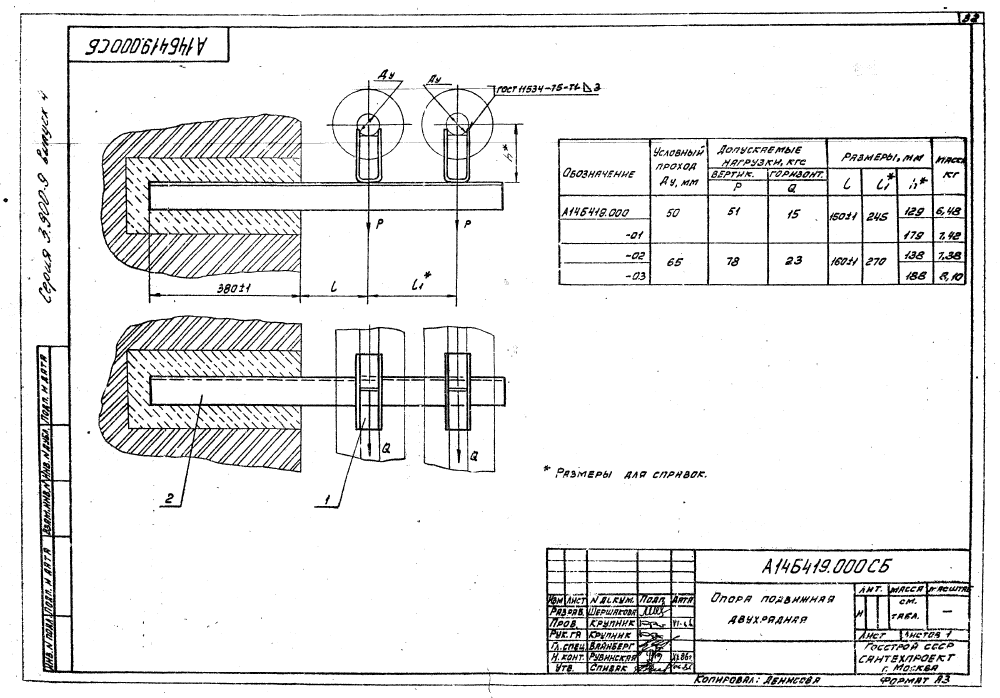 33
А14Б419.000СБ
Серия 3.900-9 Выпуск 4
Ду
Ду
ГОСТ 11534-75-Т1 3
h*
P
P
380±1
L
L1*
Q
Q
2
1
Обозначение
Условный проход Ду, мм
Допускаемые нагрузки, кгс
Вертик. P
Горизонт. Q
Размеры, мм
L
L1*
h*
Масса кг
А14Б419.000 50 51 15 150±1 245 129 6,48
-01 179 7,42
-02 65 78 23 160±1 270 138 7,38
-03 188 8,10
* Размеры для справок.
Инв. № подл. Подп. и дата Взам. инв. № Инв. № дубл. Подп. и дата
А14Б419.000СБ
Изм Лист № докум. Подп. Дата
Разраб. Шершакова
Пров. Крупник
Рук. гр. Крупник
Гл. спец. Вайнберг
Н. конт. Рувинская
Утв. Спивак
Опора подвижная
двухрядная
Лит. Масса Масштаб
И см. табл. —
Лист Листов 1
Госстрой СССР
Сантехпроект
г. Москва
Копировал: Денисова Формат А3